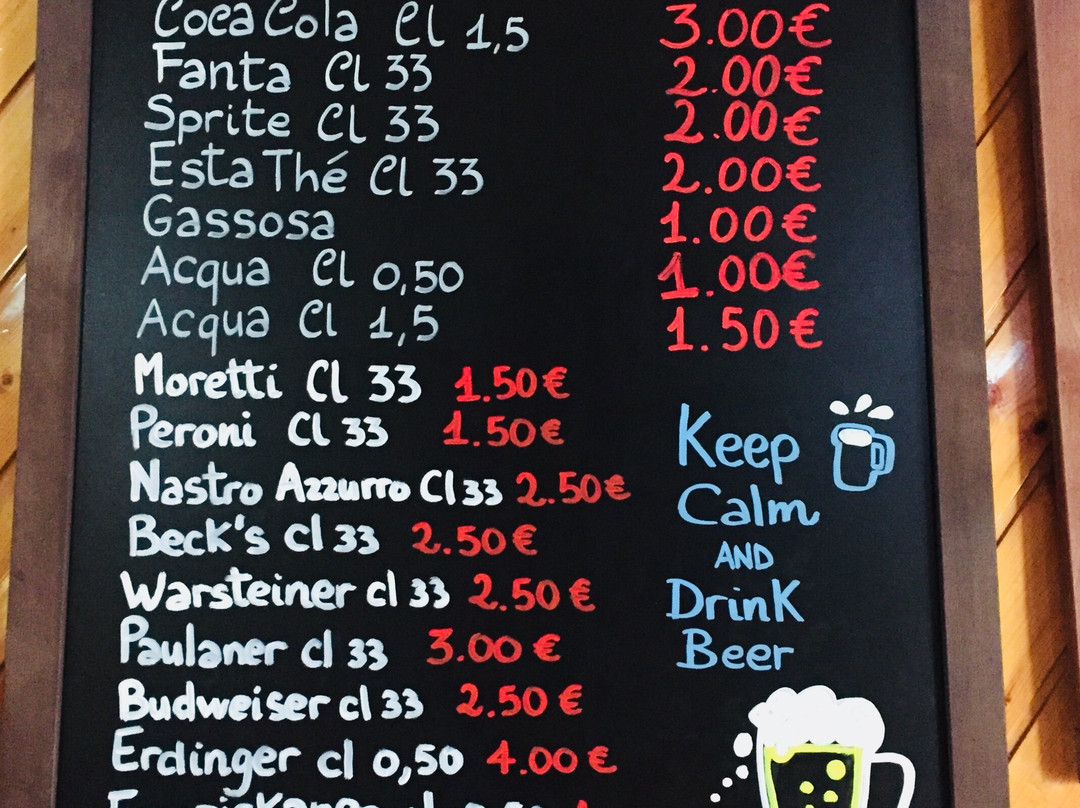 Coca Cola Cl 1,5 3.00€
Fanta Cl 33 2.00€
Sprite Cl 33 2.00€
Esta Thé Cl 33 2.00€
Gassosa 1.00€
Acqua Cl 0,50 1.00€
Acqua Cl 1,5 1.50€
Moretti Cl 33 1.50€
Peroni Cl 33 1.50€
Nastro Azzurro Cl 33 2.50€
Beck's cl 33 2.50€
Warsteiner cl 33 2.50€
Paulaner cl 33 3.00€
Budweiser cl 33 2.50€
Erdinger cl 0,50 4.00€
Keep
Calm
AND
Drink
Beer